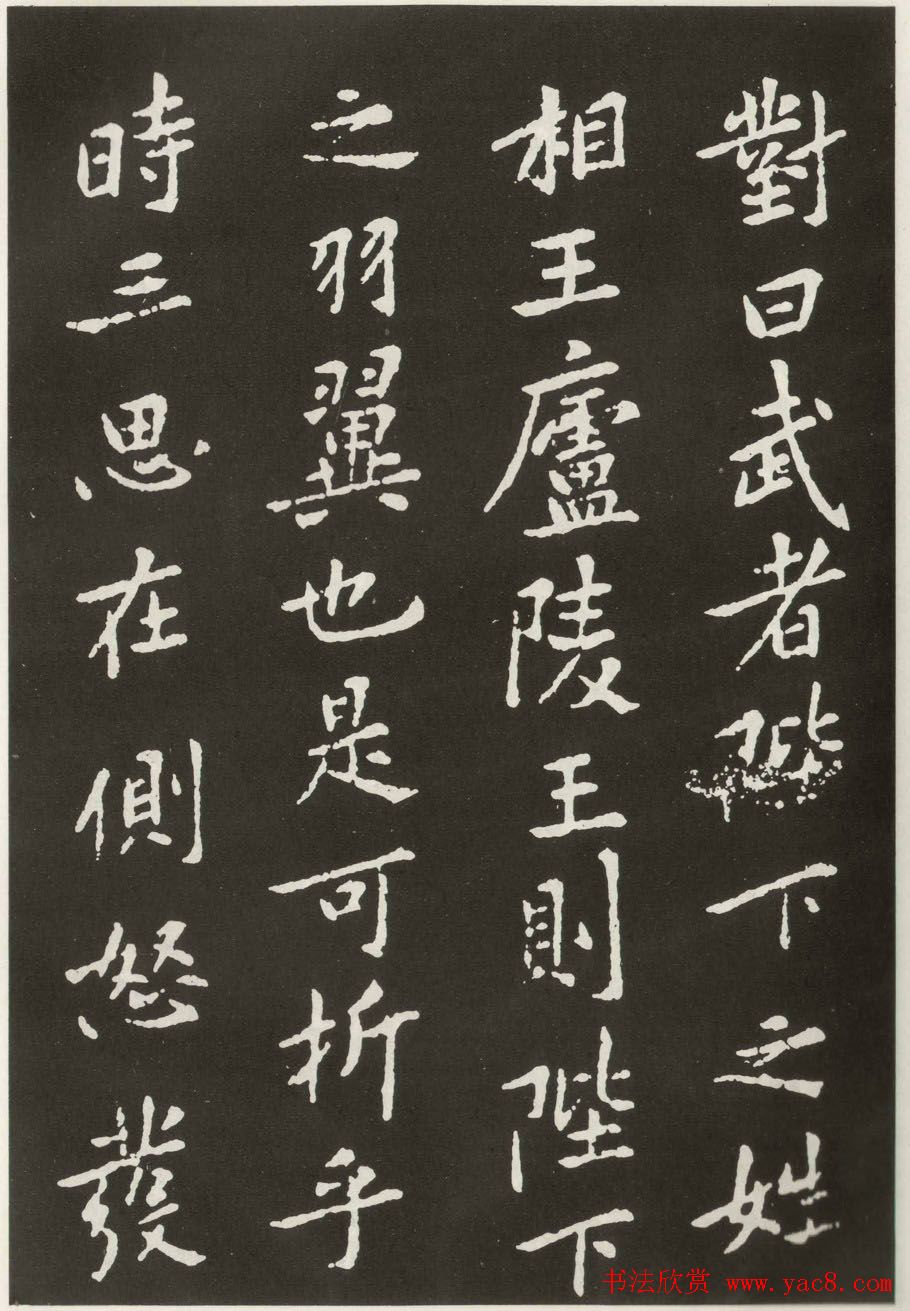 對曰武者陛下之姓
相王廬陵王則陛下
之羽翼也是可折乎
時三思在側怒發
书法欣赏 www.yac8.com